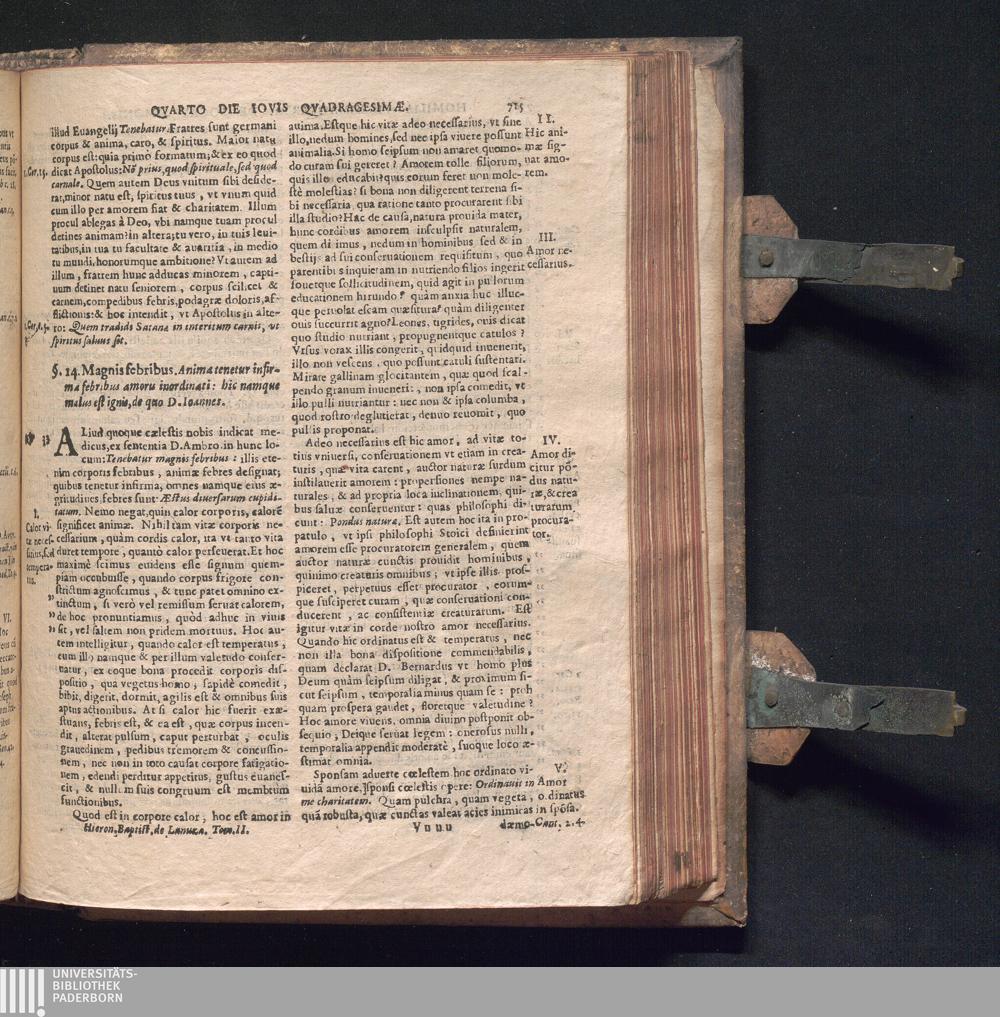 QVARTO DIE IOVIS QVADRAGESIMÆ.
715
illud Euangelij Tenebatur. Fratres sunt germani
corpus & anima, caro, & spiritus. Maior natu
corpus est: quia primo formatum; & ex eo quod
dicat Apostolus: Nō prius, quod spirituale, sed quod
carnale. Quem autem Deus vnitum sibi deside-
rat, minor natu est, spiritus tuus, vt vnum quid
cum illo per amorem fiat & charitatem. Illum
procul ablegas à Deo, vbi namque tuam procul
detines animam? in altera; tu vero, in tuis leui-
tatibus, in tua tu facultate & auaritia, in medio
tu mundi, honorumque ambitione? Vt autem ad
illum, fratrem hunc adducas minorem, capti-
uum detinet natu seniorem, corpus scilicet &
carnem, compedibus febris, podagræ doloris, af-
flictionis: & hoc intendit, vt Apostolus in alte-
ro: Quem tradidi Satana in interitum carnis, vt
spiritus saluus sit.
1. Cor. 15.
1. Cor. 5.
§. 14. Magnis febribus. Anima tenetur infir-
ma febribus amoru inordinati: hic namque
malus est ignis, de quo D. Ioannes.
33
ALiud quoque cælestis nobis indicat me-
dicus, ex sententia D. Ambro. in hunc lo-
cum: Tenebatur magnis febribus: illis ete-
nim corporis febribus, animæ febres designat;
quibus tenetur infirma, omnes namque eius æ-
gritudines, febres sunt: Æstus diuersarum cupidi-
tatum. Nemo negat, quin calor corporis, calorē
significet animæ. Nihil tam vitæ corporis ne-
cessarium, quàm cordis calor, ita vt tanto vita
duret tempore, quantò calor perseuerat. Et hoc
maximè scimus euidens esse signum quem-
piam occubuisse, quando corpus frigore con-
strictum agnoscimus, & tunc patet omnino ex-
tinctum, si verò vel remissum seruat calorem,
de hoc pronuntiamus, quòd adhuc in viuis
sit, vel saltem non pridem mortuus. Hoc au-
tem intelligitur, quando calor est temperatus,
cum illo namque & per illum valetudo conser-
uatur, ex eoque bona procedit corporis dis-
positio, qua vegetus homo, sapidè comedit,
bibit, digerit, dormit, agilis est & omnibus suis
aptus actionibus. At si calor hic fuerit exæ-
stuans, febris est, & ea est, quæ corpus incen-
dit, alterat pulsum, caput perturbat, oculis
grauedinem, pedibus tremorem & concussio-
nem, nec non in toto causat corpore fatigatio-
nem, edendi perditur appetitus, gustus euanes-
cit, & nullum suis congruum est membrum
functionibus.
Quod est in corpore calor, hoc est amor in
Hieron. Baptist. de Lanuza. Tom. II.
I.
Calor vi-
tæ neces-
sarius, sed
tempera-
tus.
anima. Estque hic vitæ adeo necessarius, vt sine
illo, nedum homines, sed nec ipsa viuere possunt
animalia. Si homo seipsum non amaret quomo-
do curam sui gereret? Amorem tolle filiorum,
quis illo educabit? quis eorum feret non mole-
stè molestias? si bona non diligerent terrena si-
bi necessaria, qua ratione tanto procurarent sibi
illa studio? Hac de causa, natura prouida mater,
hunc cordibus amorem insculpsit naturalem,
quem diximus, nedum in hominibus sed & in
bestijs ad sui conseruationem requisitum, quo
parentibus inquietam in nutriendo filios ingerit
fouetque sollicitudinem, quid agit in pullorum
educationem hirundo? quàm anxia huc illuc-
que peruolat escam quæsitura? quàm diligenter
ouis succurrit agno? Leones, tigrides, ouis dicat
quo studio nutriant, propugnentque catulos?
Vrsus vorax illis congerit, quidquid inuenerit,
illo non vescens, quo possunt catuli sustentari.
Mirare gallinam glocitantem, quæ quod scal-
pendo granum inuenerit, non ipsa comedit, vt
illo pulli nutriantur: nec non & ipsa columba,
quod rostro deglutierat, denuo reuomit, quo
pullis proponat.
Adeo necessarius est hic amor, ad vitæ to-
tius vniuersi, conseruationem vt etiam in crea-
turis, quæ vita carent, auctor naturæ surdum
instillauerit amorem: propensiones nempe na-
turales, & ad propria loca inclinationem, qui-
bus saluæ conseruentur: quas philosophi di-
cunt: Pondus natura. Est autem hoc ita in pro-
patulo, vt ipsi philosophi Stoici definierint
amorem esse procuratorem generalem, quem
auctor naturæ cunctis prouidit hominibus,
quinimo creaturis omnibus; vt ipse illis pros-
piceret, perpetuus esset procurator, eorum-
que susciperet curam, quæ conseruationi con-
ducerent, ac consistentiæ creaturarum. Est
igitur vitæ in corde nostro amor necessarius.
Quando hic ordinatus est & temperatus, nec
non illa bona dispositione commendabilis,
quam declarat D. Bernardus vt homo plus
Deum quàm seipsum diligat, & proximum si-
cut seipsum, temporalia minus quam se: proh
quam prospera gaudet, floretque valetudine?
Hoc amore viuens, omnia diuino postponit ob-
sequio, Deique seruat legem: onerosus nulli,
temporalia appendit moderatè, suoque loco æ-
stimat omnia.
Sponsam aduerte cœlestem hoc ordinato vi-
uidā amore, sponsi cœlestis opere: Ordinauit in
me charitatem. Quam pulchra, quam vegeta,
quā robusta, quæ cunctas valeat acies inimicas
Vuuu
dæmo-
II.
Hic ani-
mæ sig-
nat amo-
rem.
III.
Amor ne-
cessarius.
IV.
Amor di-
citur pō-
dus natu-
ræ, & crea
turarum
procura-
tor.
V.
Amor
ordinatus
in spōsa.
Cant. 2. 4.
UNIVERSITÄTS-
BIBLIOTHEK
PADERBORN